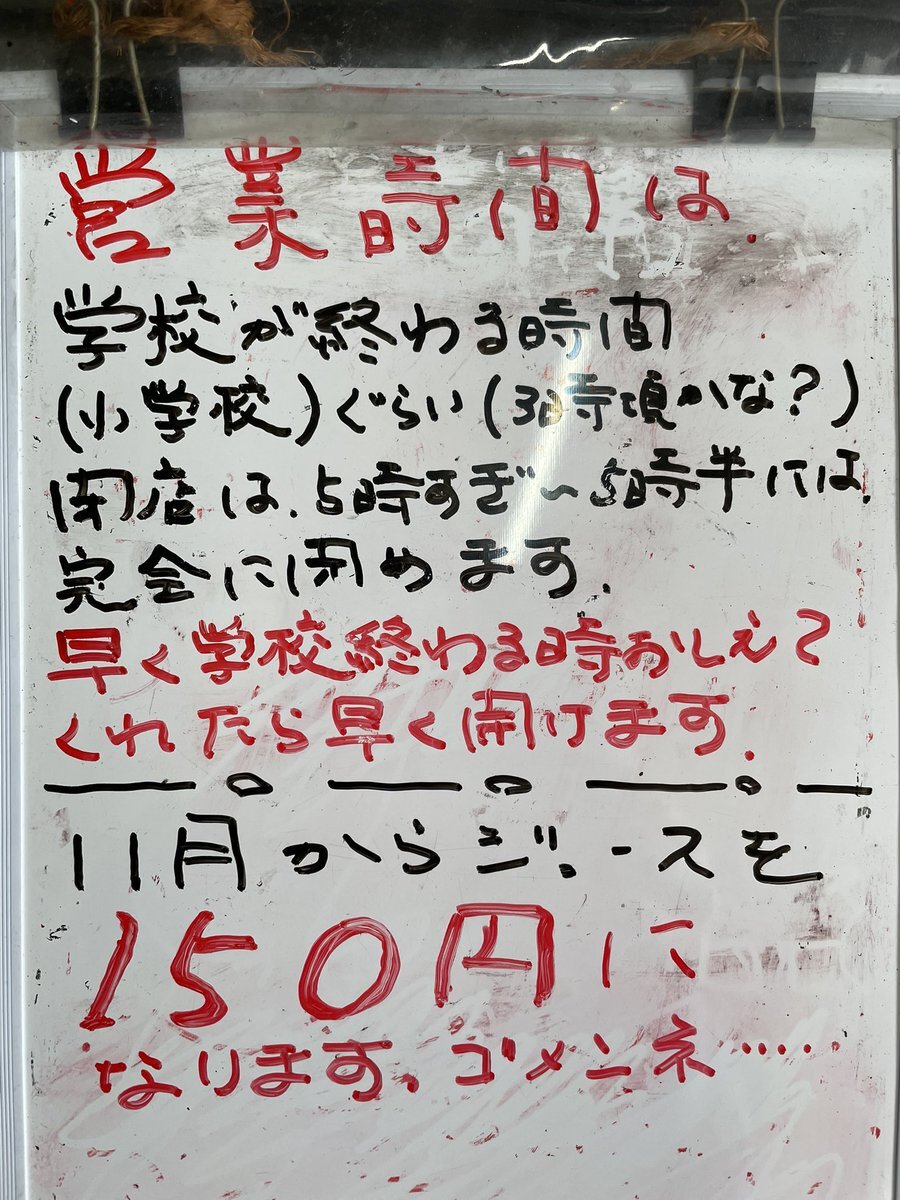 営業時間は.
学校が終わる時間
(小学校)ぐらい(3時頃かな?)
閉店は.5時すぎ〜5時半には.
完全に閉めます.
早く学校終わる時おしえて
くれたら早く開けます.
11月からジュースを
150円に
なります、ゴメンネ……